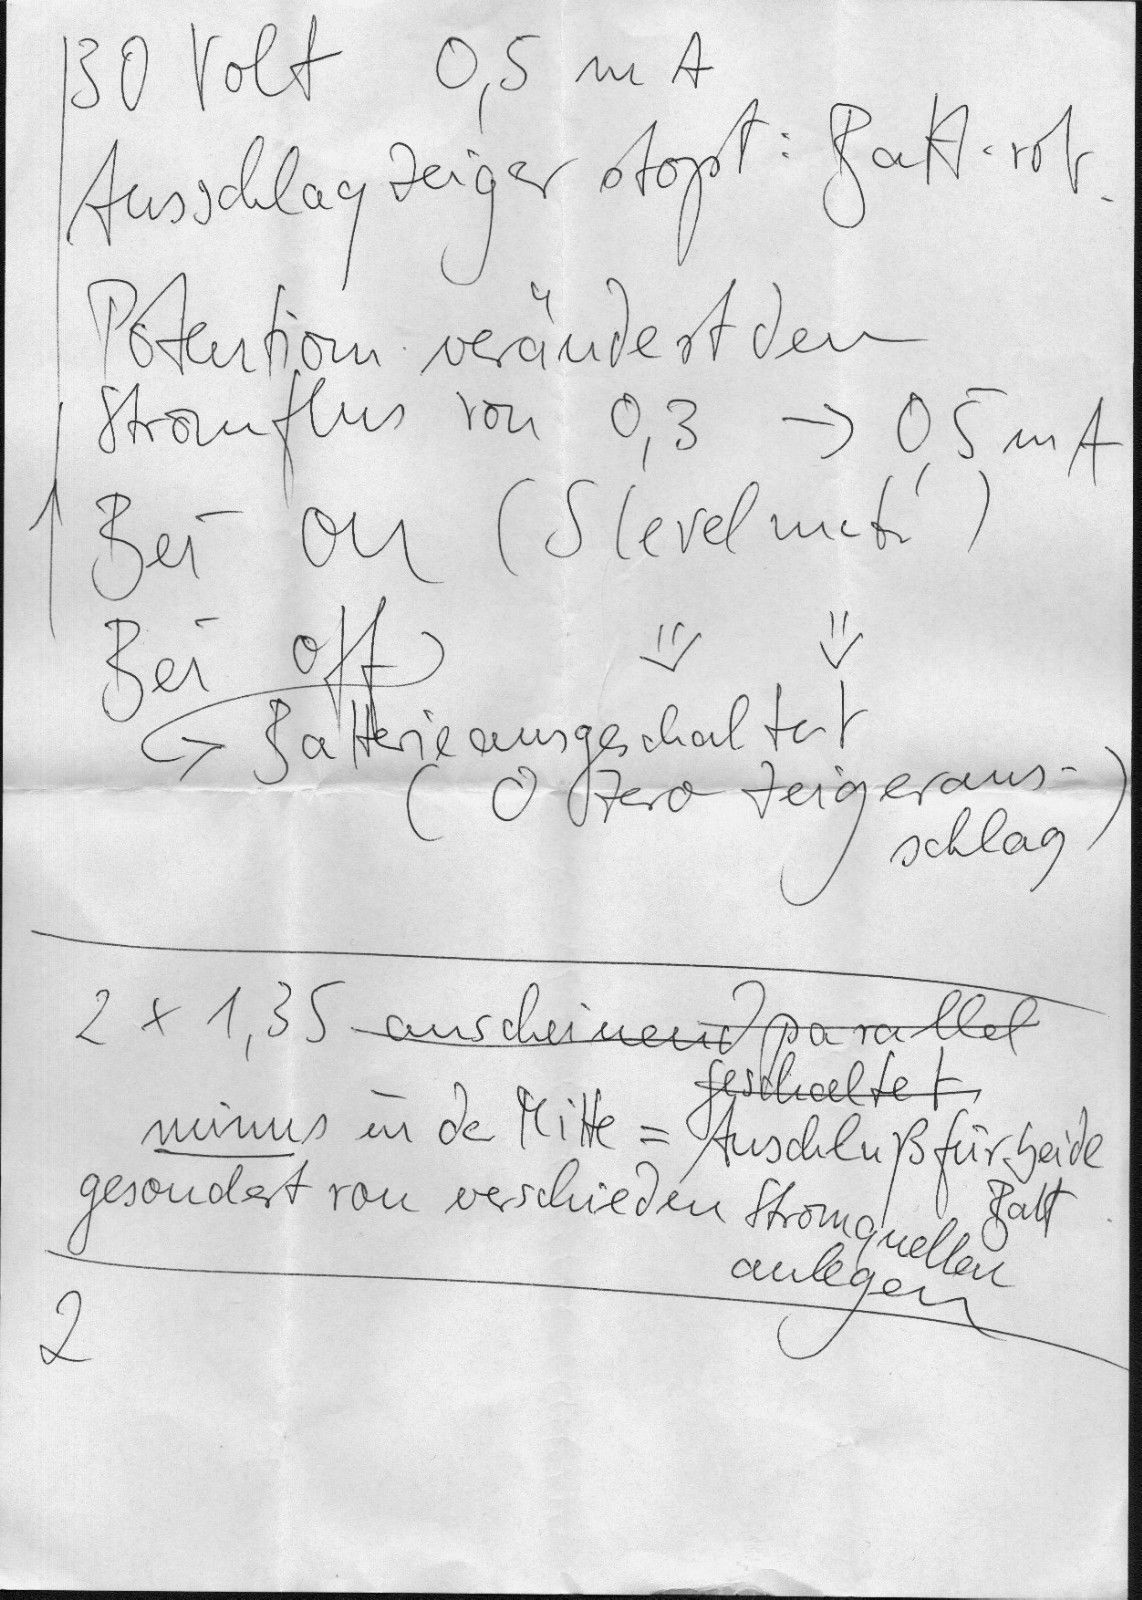 30 Volt 0,5 mA
Ausschlag Zeiger stopt: Batt. rot.
Potentiom. verändert den
Stromflus von 0,3 → 0,5 mA
Bei on (Slevelmetr)
Bei off
Batterie ausgeschaltet
(0 Zero Zeigeraus-
schlag)
2 x 1,35 anscheinend parallel
geschaltet
minus in der Mitte = Anschluß für beide
Batt
gesondert von verschieden Stromquellen
anlegen
2